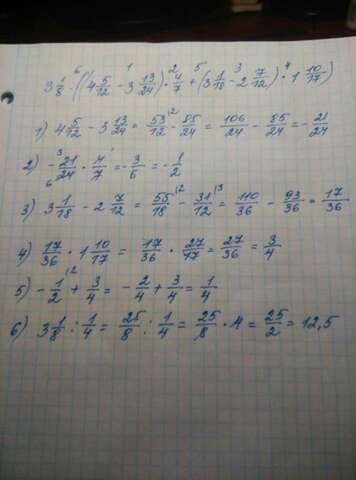 6 1 2 5 3 4
3 1/8 : ((4 5/12 - 3 13/24) · 4/7 + (3 1/18 - 2 7/12) · 1 10/17)
1) 4 5/12 - 3 13/24 = 53/12 - 85/24 = 106/24 - 85/24 = - 21/24
2) - 21/24 · 4/7 = - 3/6 = - 1/2
3) 3 1/18 - 2 7/12 = 55/18 - 31/12 = 110/36 - 93/36 = 17/36
4) 17/36 · 1 10/17 = 17/36 · 27/17 = 27/36 = 3/4
5) - 1/2 + 3/4 = - 2/4 + 3/4 = 1/4
6) 3 1/8 : 1/4 = 25/8 : 1/4 = 25/8 · 4 = 25/2 = 12,5